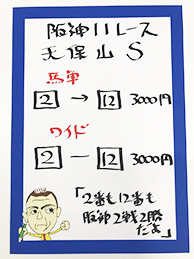 阪神11レース
天保山S
馬単
2 → 12 3000円
ワイド
2 － 12 3000円
「2番も12番も
阪神2戦2勝
だよ」